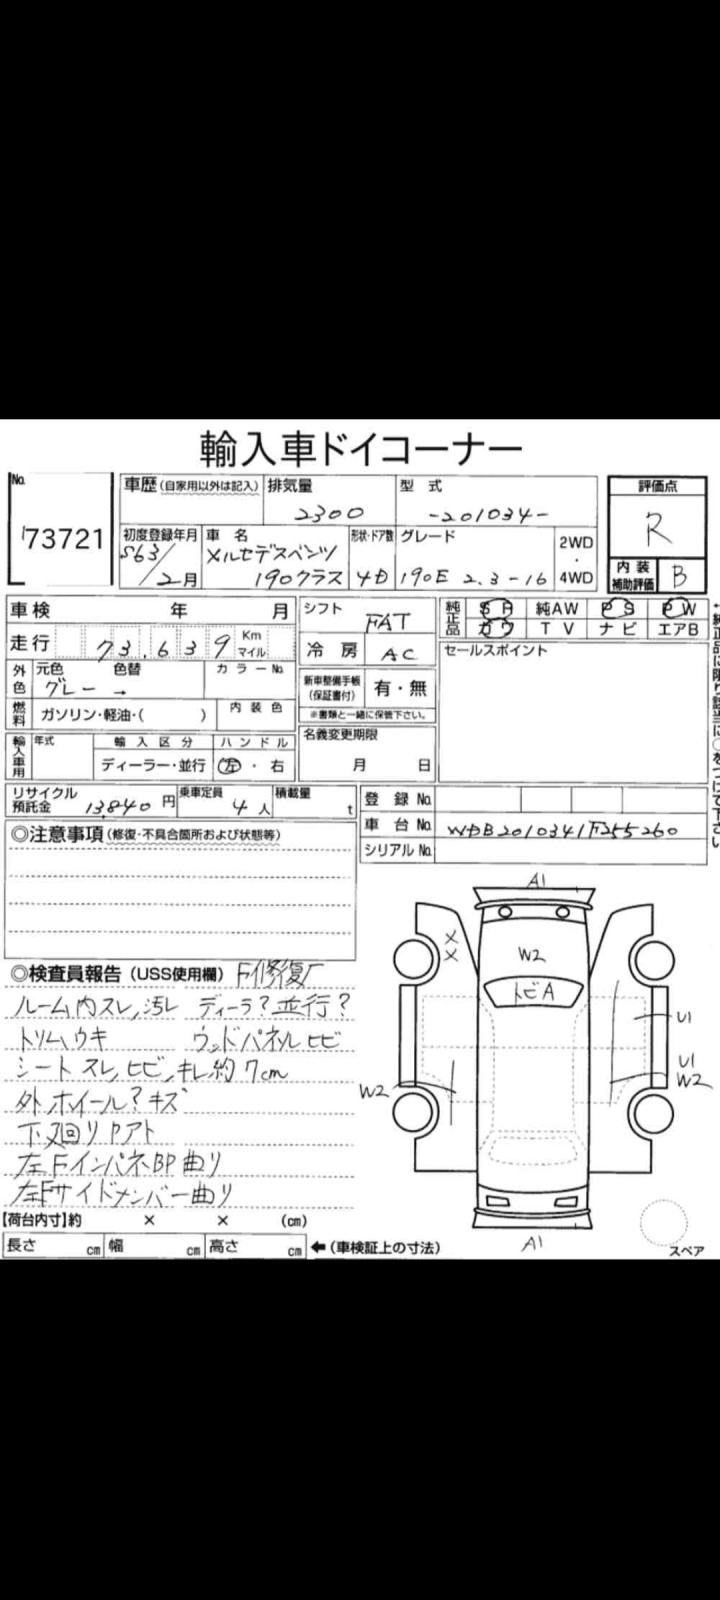 輸入車ドイコーナー
No.
73721
車歴 (自家用以外は記入)
排気量
2300
型 式
-201034-
評価点
R
内装補助評価
B
初度登録年月
S63/2月
車 名
メルセデスベンツ
190クラス
形状・ドア数
4D
グレード
190E 2.3-16
2WD
・
4WD
車検 年 月
シフト
FAT
純正品
SR 純AW PS PW
カワ TV ナビ エアB
走行 73,639 Km マイル
冷 房
AC
セールスポイント
外色
元色 色替
グレー →
カラーNo.
新車整備手帳
(保証書付)
有・無
※書類と一緒に保管下さい。
燃料
ガソリン・軽油・( )
内装色
名義変更期限
月 日
輸入車用
年式
輸入区分
ディーラー・並行
ハンドル
左・右
←純正品に限り該当に○をつけて下さい
リサイクル預託金
13,840 円
乗車定員
4人
積載量
t
登録No.
車台No.
WDB2010341F255260
シリアルNo.
◎注意事項 (修復・不具合箇所および状態等)
◎検査員報告 (USS使用欄) F修復
ルーム内スレ,汚レ ディーラ?並行?
トリムウキ ウッドパネルヒビ
シートスレ,ヒビ,キレ約7cm
外ホイール?キズ
下廻りPアト
左FインパネBP曲り
左Fサイドメンバー曲り
A1
XX
W2
トビA
U1
U1
W2
W2
A1
スペア
【荷台内寸】約 × × (cm)
長さ cm 幅 cm 高さ cm ←(車検証上の寸法)